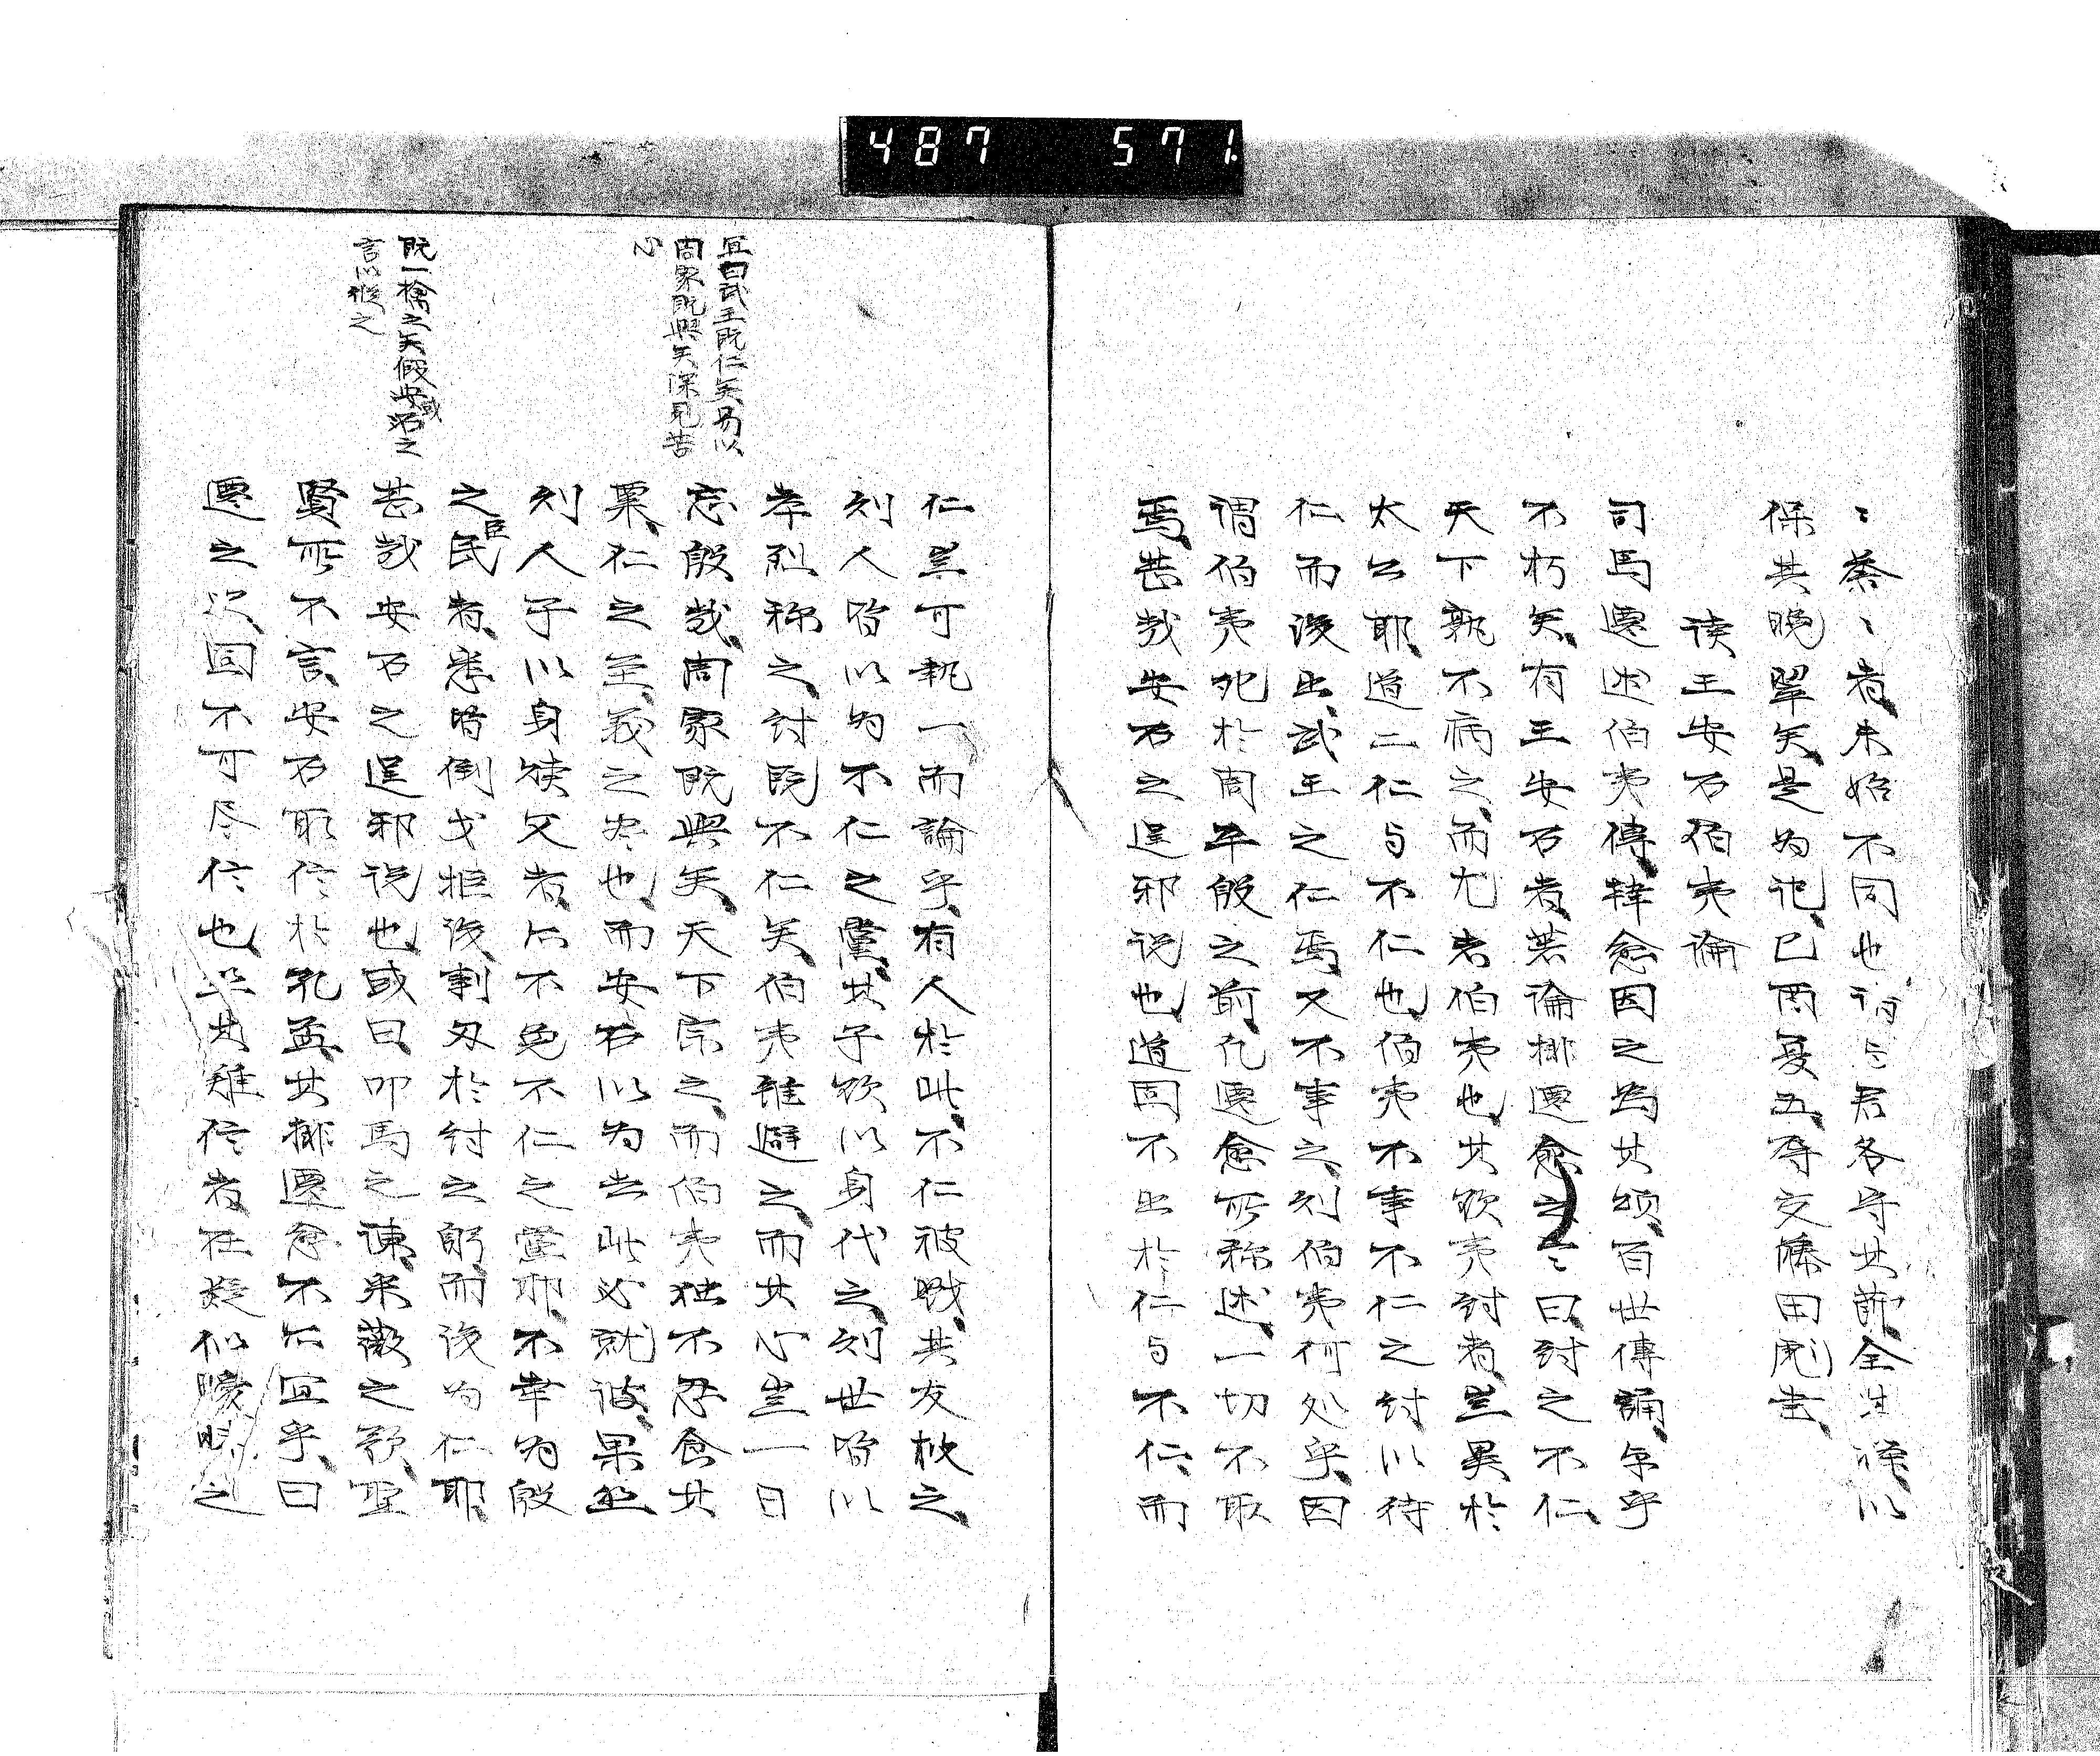 487 571.
〻蔡〻者未始不同也請与君各守其節全其操以
保其晚翠矣是為記己酉夏五存交藤田彪書
読王安石伯夷論
司馬遷述伯夷傳韓愈因之為其頌百世傳誦乎
不朽矣有王安石者著論排遷愈之言曰紂之不仁
天下孰不病之而尤者伯夷也其欲夷紂者豈異於
太公耶道二仁与不仁也伯夷不事不仁之紂以待
仁而後出武王之仁焉又不事之則伯夷何処乎因
謂伯夷死於周卒殷之前凡遷愈所称述一切不取
焉甚哉安石之逞邪説也道固不出於仁与不仁而
仁豈可執一而論乎有人於此不仁被戮其友救之
則人皆以為不仁之黨其子欲以身代之則世皆以
孝烈称之紂既不仁矣伯夷雖避之而其心豈一日
忘殷哉周家既興矣天下宗之而伯夷独不忍食其
粟仁之至義之尽也而安石以為去此必就彼果然
則人子以身贖父者亦不免不仁之黨耶不幸為殷
之臣民者悉皆倒戈拒後事刃於紂之躬而後為仁耶
甚哉安石之逞邪説也或曰叩馬之諫采薇之歌聖
賢所不言安石取信於孔孟其排遷愈不亦宜乎曰
遷之次固不可尽信也然其難信者在疑似曖昧之
宜曰武王既仁矣易以
周家既興矣深見苦
心
既一掾之矣假安或石之
言以縦之